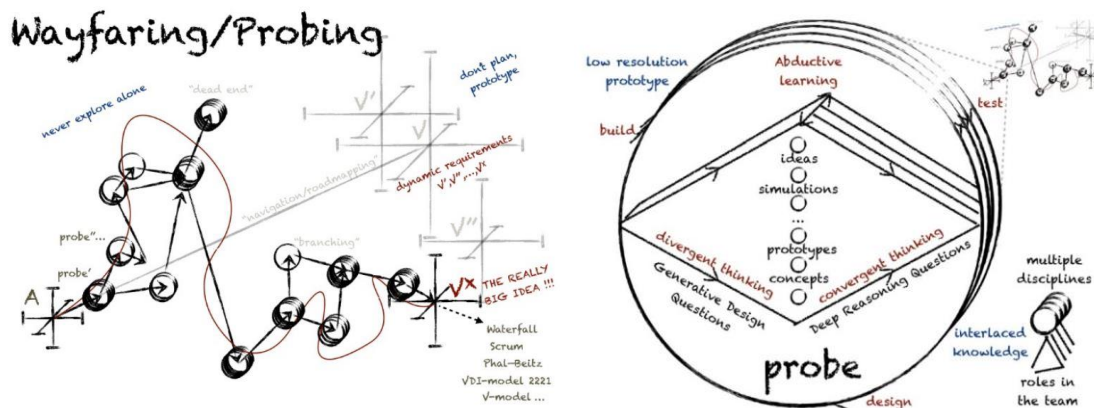 Wayfaring/Probing
"dead end"
never explore alone
don't plan,
prototype
V'
V
dynamic requirements
V',V'',...,Vˣ
"navigation/roadmapping"
V''
probe''...
probe'
A
"branching"
Vˣ
THE REALLY
BIG IDEA !!!
Waterfall
Scrum
Phal-Beitz
VDI-model 2221
V-model ...
low resolution
prototype
Abductive
learning
build
test
ideas
simulations
...
prototypes
concepts
divergent thinking
convergent thinking
Generative Design
Questions
Deep Reasoning Questions
probe
design
multiple
disciplines
interlaced
knowledge
roles in
the team